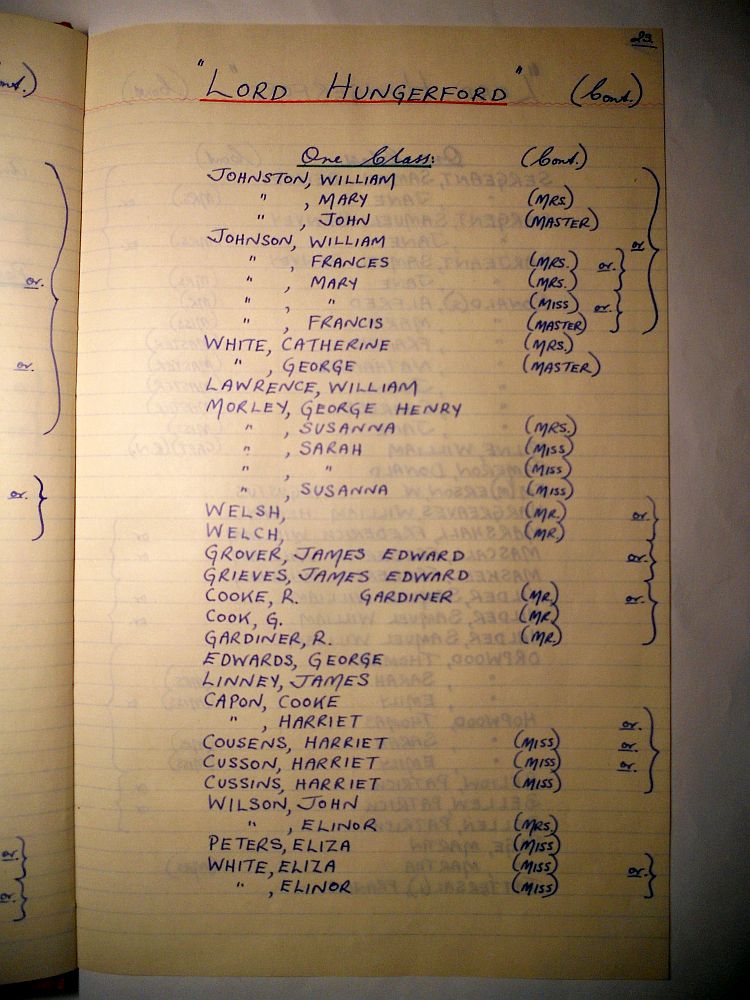 23.
"LORD HUNGERFORD" (Cont.)
One Class: (Cont.)
JOHNSTON, WILLIAM
" , MARY (MRS.)
" , JOHN (MASTER)
JOHNSON, WILLIAM or.
" , FRANCES (MRS.) or.
" , MARY (MRS.)
" , " (MISS) or.
" , FRANCIS (MASTER)
WHITE, CATHERINE (MRS.)
" , GEORGE (MASTER)
LAWRENCE, WILLIAM
MORLEY, GEORGE HENRY
" , SUSANNA (MRS.)
" , SARAH (MISS)
" , " (MISS)
" , SUSANNA (MISS)
WELSH, (MR.) or.
WELCH, (MR.)
GROVER, JAMES EDWARD or.
GRIEVES, JAMES EDWARD
COOKE, R. GARDINER (MR.) or.
COOK, G. (MR.)
GARDINER, R. (MR.)
EDWARDS, GEORGE
LINNEY, JAMES
CAPON, COOKE
" , HARRIET or.
COUSENS, HARRIET (MISS) or.
CUSSON, HARRIET (MISS) or.
CUSSINS, HARRIET (MISS)
WILSON, JOHN
" , ELINOR (MRS.)
PETERS, ELIZA (MISS)
WHITE, ELIZA (MISS) or.
" , ELINOR (MISS)
or.
or.
or.
or.
or.